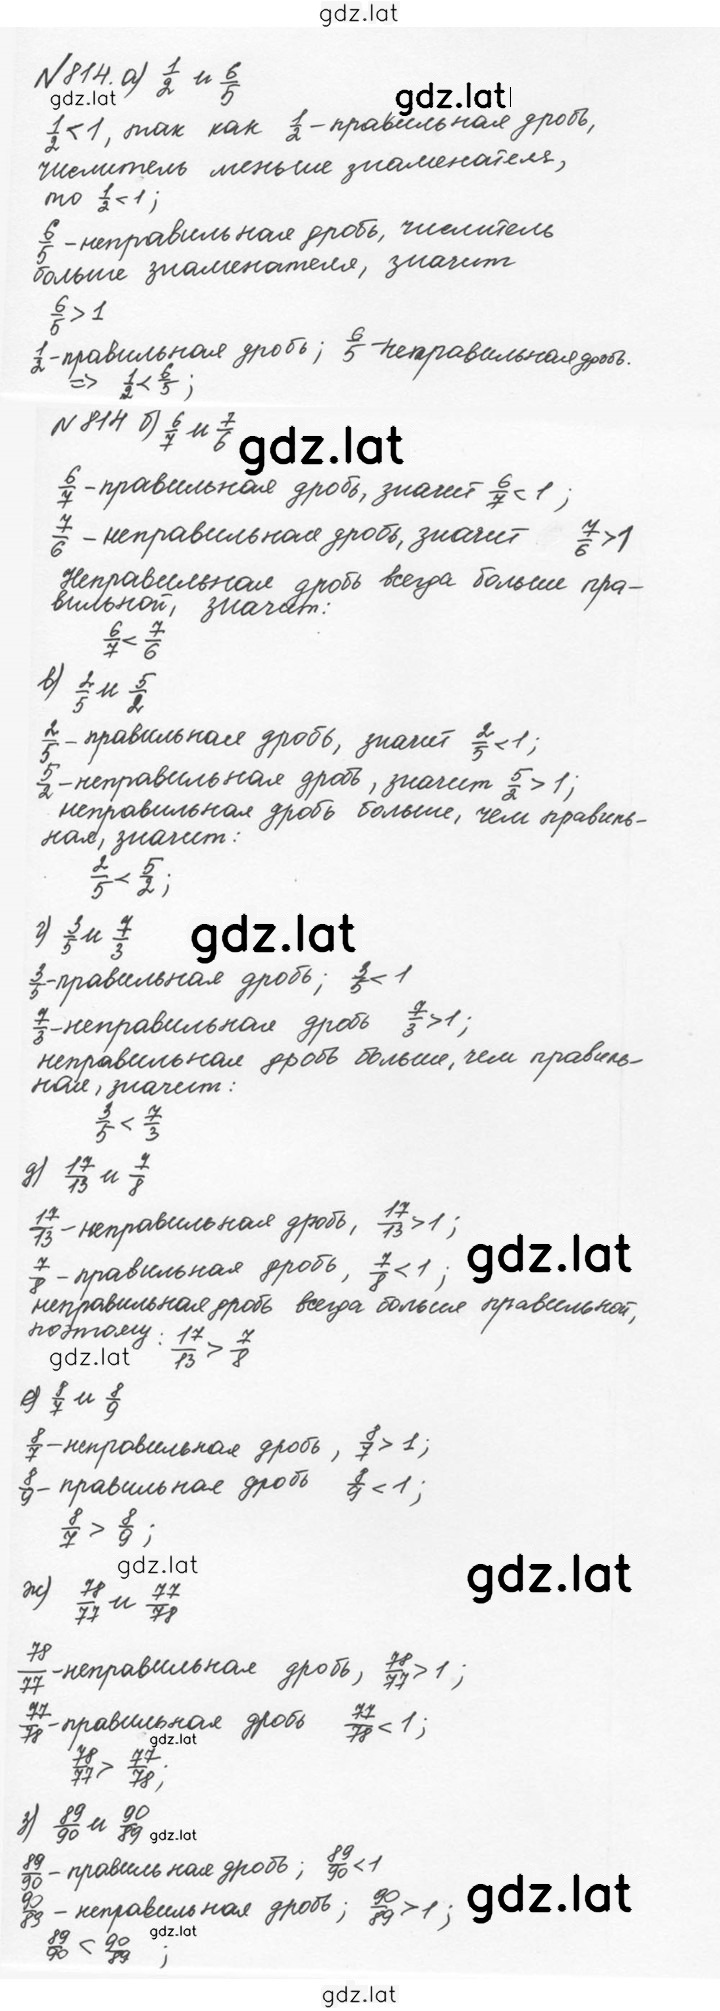 gdz.lat
№814. а) 1/2 и 6/5
gdz.lat gdz.lat
1/2 < 1, так как 1/2 - правильная дробь,
числитель меньше знаменателя,
то 1/2 < 1;
6/5 - неправильная дробь, числитель
больше знаменателя, значит
6/5 > 1
1/2 - правильная дробь; 6/5 - неправильная дробь.
=> 1/2 < 6/5;
№814 б) 6/7 и 7/6
gdz.lat
6/7 - правильная дробь, значит 6/7 < 1;
7/6 - неправильная дробь, значит 7/6 > 1
Неправильная дробь всегда больше пра-
вильной, значит:
6/7 < 7/6
в) 2/5 и 5/2
2/5 - правильная дробь, значит 2/5 < 1;
5/2 - неправильная дробь, значит 5/2 > 1;
неправильная дробь больше, чем правиль-
ная, значит:
2/5 < 5/2;
г) 3/5 и 7/3
gdz.lat
3/5 - правильная дробь; 3/5 < 1
7/3 - неправильная дробь 7/3 > 1;
неправильная дробь больше, чем правиль-
ная, значит:
3/5 < 7/3
д) 17/13 и 7/8
17/13 - неправильная дробь, 17/13 > 1;
gdz.lat
7/8 - правильная дробь, 7/8 < 1;
неправильная дробь всегда больше правильной,
поэтому: 17/13 > 7/8
gdz.lat
е) 8/7 и 8/9
8/7 - неправильная дробь, 8/7 > 1;
8/9 - правильная дробь 8/9 < 1;
8/7 > 8/9;
gdz.lat
gdz.lat
ж) 78/77 и 77/78
78/77 - неправильная дробь, 78/77 > 1;
77/78 - правильная дробь 77/78 < 1;
gdz.lat
78/77 > 77/78;
з) 89/90 и 90/89
gdz.lat
89/90 - правильная дробь; 89/90 < 1
gdz.lat
90/89 - неправильная дробь; 90/89 > 1;
gdz.lat
89/90 < 90/89;
gdz.lat